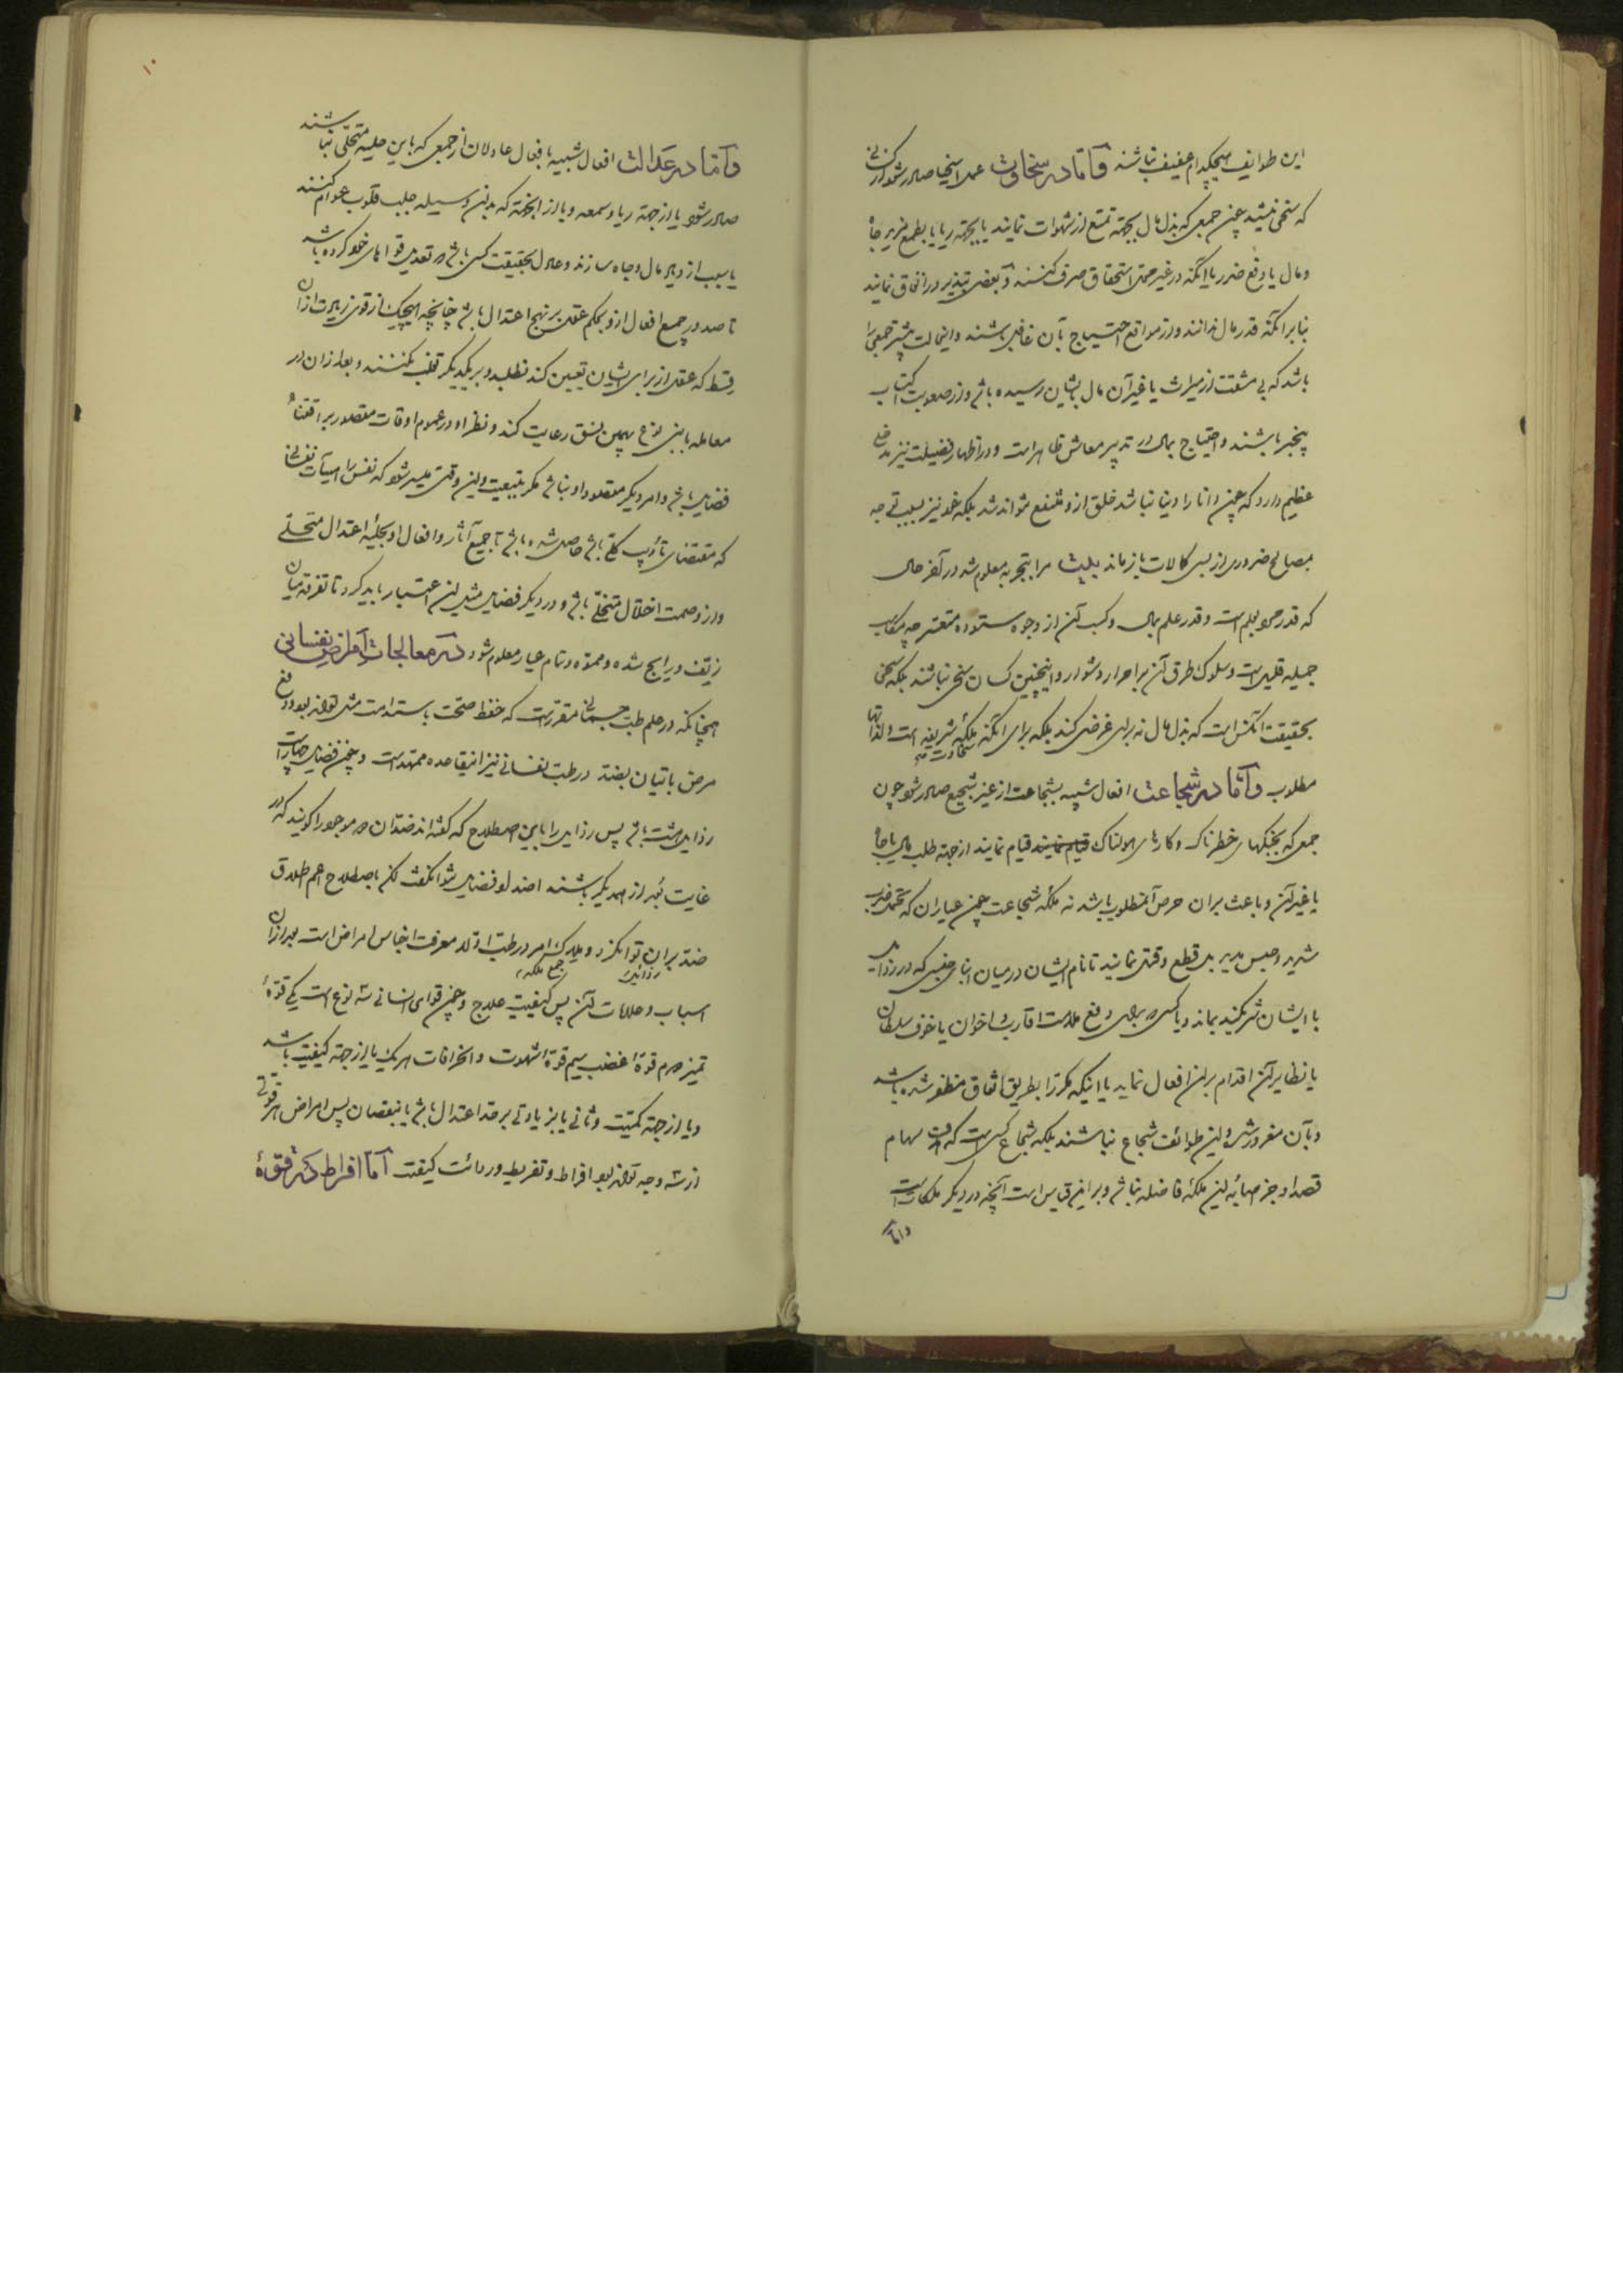 این طوایف هیچکدام عفیف نباشند و اما در سخاوت عمل اسخیا صادر شود از کسانی
که سخی نباشند چون جمعی که بذل مال بجهة تمتع از شهوات نمایند یا بجهة ریا یا بطمع مزید جاه
و مال یا دفع ضرر یا آنکه در غیر محل استحقاق صرف کنند و بعضی تبذیر در انفاق نمایند
بنابر آنکه قدر مال ندانند و از مواقع احتیاج بآن غافل باشند و اینحالت بیشتر جمعی را
باشد که بی مشقت از میراث یا غیر آن مال بایشان رسیده باشد و از صعوبت اکتساب
بیخبر باشند و احتیاج بمال در تدبیر معاش ظاهر است و در اظهار فضیلت نیز مدخلی
عظیم دارد که چون دانا را دنیا نباشد خلق ازو منتفع نتوانند شد بلکه خود نیز بسبب توجه
بمصالح ضروری از بسی کمالات باز ماند بیت مرا بتجربه معلوم شد در آخر حال
که قدر مرد بعلم است و قدر علم بمال و کسب آن از وجوه ستوده متعسر چه مکاسب
جمیله قلیل است و سلوک طرق آن بر احرار دشوار و اینچنین کسان سخی نباشند بلکه سخی
بحقیقت آنکس است که بذل مال نه برای غرضی کند بلکه برای آنکه ملکه شریفه است و لذاتها
سخاوت
مطلوب و اما در شجاعت افعال شبیه بشجاعت از غیر شجیع صادر شود چون
جمعی که بجنگهای خطرناک و کارهای هولناک قیام نمایند قیام نمایند از جهة طلب مال یا جاه
یا غیر آن و باعث بر آن حرص آنمطلوب باشد نه ملکه شجاعت همچون عیاران که تحمل ضرب
شدید و حبس مدید بل قطع و قتل نمایند تا نام ایشان در میان ابنای جنسی که در رذایل
با ایشان شریکند بماند و یا کسی که برای دفع ملامت اقارب و اخوان یا خوف سلطان
یا نظایر آن اقدام بر این افعال نماید یا اینکه مکررا بطریق اتفاق مظفر شده باشد
و بآن مغرور شده و این طوائف شجاع نباشند بلکه شجاع کسی است که هدف سهام
قصد او جز صیانه این ملکه فاضله نباشد و بر این قیاس است آنچه در دیگر ملکات است
و اما
۱۰
و اما در عدالت افعال شبیه بافعال عادلان از جمعی که باین حلیه متحلی نباشند
صادر شود یا از جهة ریا و سمعه و یا از آنجهة که بدین وسیله جلب قلوب عوام کنند
یا سبب ازدیاد مال و جاه سازند و عادل بحقیقت کسی باشد که تعدیل قواهای خود کرده باشد
تا صدور جمیع افعال ازو بحکم عقل بر نهج اعتدال باشد چنانچه هیچیک از قوی زیادت از آن
قسط که عقل از برای ایشان تعیین کند نطلبد و بر یکدیگر تغلب نکنند و بعد از آن در
معامله با بنی نوع بهمین نسق رعایت کند و نظر او در عموم اوقات مقصور بر اقتناء
فضایل باشد و امر دیگر مقصود او نباشد مگر بتبعیت و این وقتی میسر شود که نفس را هیأت نفسانی
که مقتضای تأدیب کلی باشد حاصل شده باشد تا جمیع آثار و افعال او بحلیه اعتدال متحلی
و از وصمت اختلال متخلی باشد و در دیگر فضایل مثل این اعتبار باید کرد تا تفرقه میان
زیف و رایج شده و مموه و تمام عیار معلوم شود در معالجات امراض نفسانی
همچنانکه در علم طب جسمانی مقررست که حفظ صحت باستدامت مثل تواند بود و دفع
مرض باتیان بضد در طب نفسانی نیز اینقاعده ممهدست و چون فضایل چهارست
رذایل هشت باشد پس رذایل را باین اصطلاح که گفته‌اند ضدان دو موجود را گویند که در
غایت بُعد از همدیگر باشند اضداد فضایل نتوان گفت لکن باصطلاح اعم اطلاق
ضد بران توان کرد و ملاک امر در طب اولا معرفت اجناس امراض است بعد از آن
رذائل جمع ملکه
اسباب و علامات آن پس کیفیت علاج و چون قوای انسانی سه نوع است یکی قوة
تمیز دوم قوة غضب سیم قوة شهوت و انحرافات هر یک یا از جهة کیفیت باشد
و یا از جهة کمیت و ثانی یا بزیادتی بر حد اعتدال باشد یا بنقصان پس امراض هر قوتی
از سه وجه تواند بود افراط و تفریط و رداءت کیفیت اما افراط در قوة